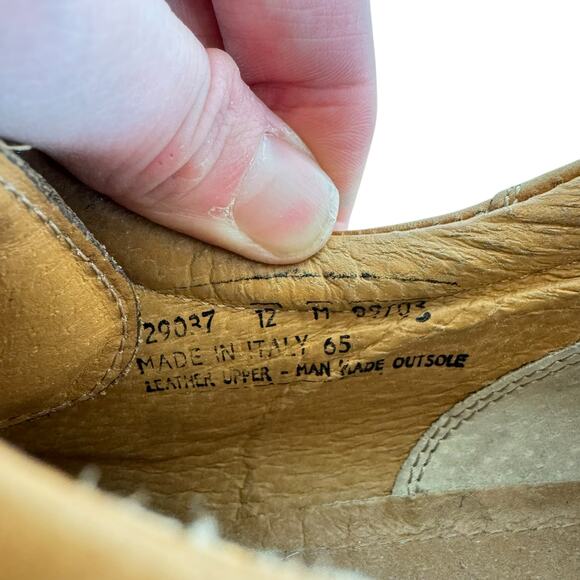 29037 12 M 09/03
MADE IN ITALY 65
LEATHER UPPER - MAN MADE OUTSOLE